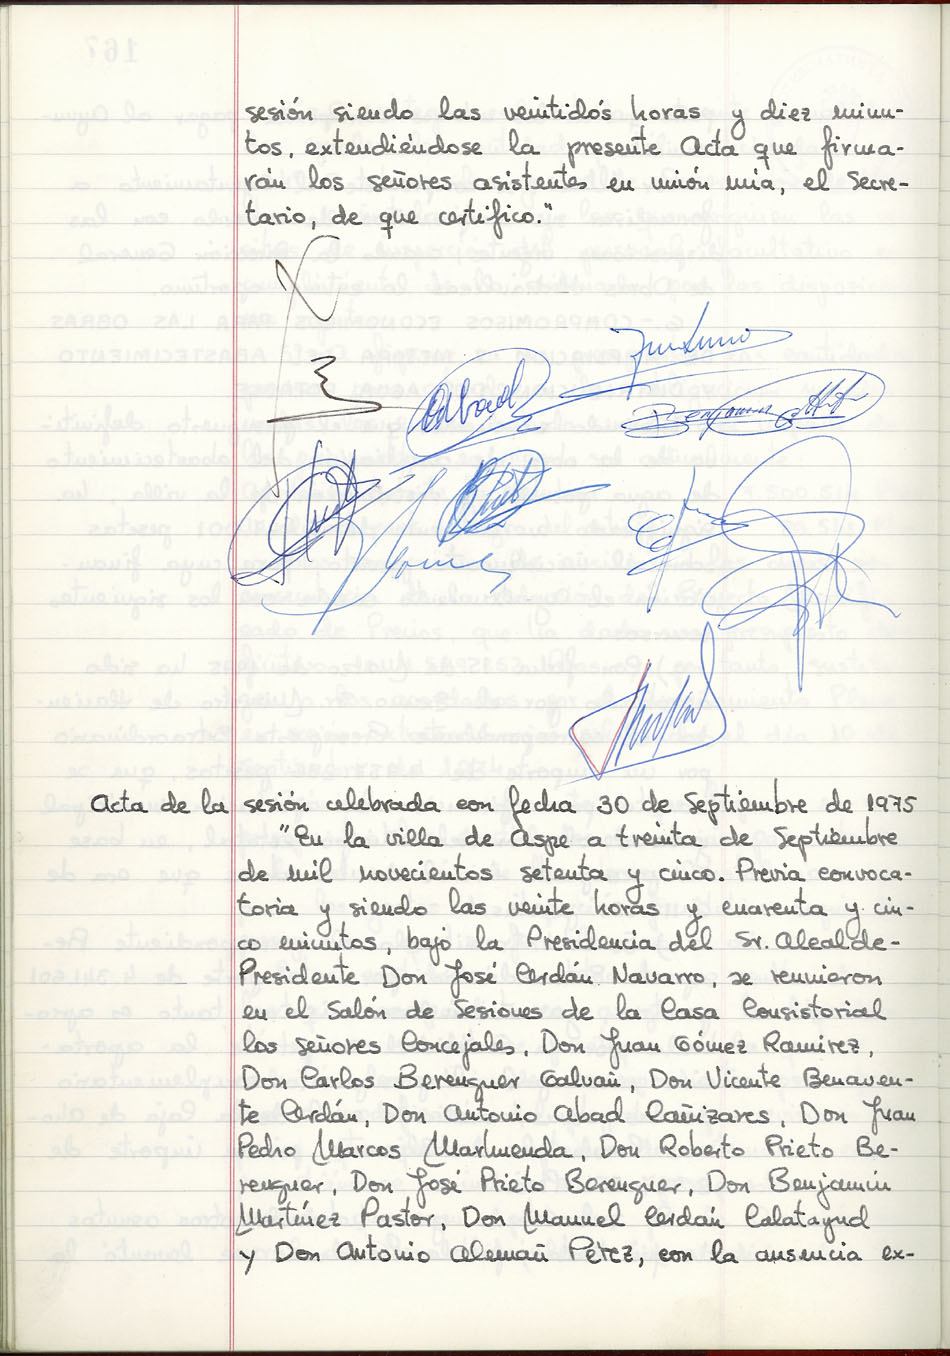 sesión siendo las veintidós horas y diez minu-
tos, extendiéndose la presente Acta que firma-
rán los señores asistentes en unión mia, el Secre-
tario, de que certifico."
Abad
Benjamin
Gomez
Acta de la sesión celebrada con fecha 30 de Septiembre de 1975
"En la villa de Aspe a treinta de Septiembre
de mil novecientos setenta y cinco. Previa convoca-
toria y siendo las veinte horas y cuarenta y cin-
co minutos, bajo la Presidencia del Sr. Alcalde-
Presidente Don José Cerdán Navarro, se reunieron
en el Salón de Sesiones de la Casa Consistorial
los señores Concejales, Don Juan Gómez Ramirez,
Don Carlos Berenguer Galvañ, Don Vicente Benaven-
te Cerdán, Don Antonio Abad Cañizares, Don Juan
Pedro Marcos Marhuenda, Don Roberto Prieto Be-
renguer, Don José Prieto Berenguer, Don Benjamín
Martínez Pastor, Don Manuel Cerdán Calatayud
y Don Antonio Alemañ Pérez, con la ausencia ex-